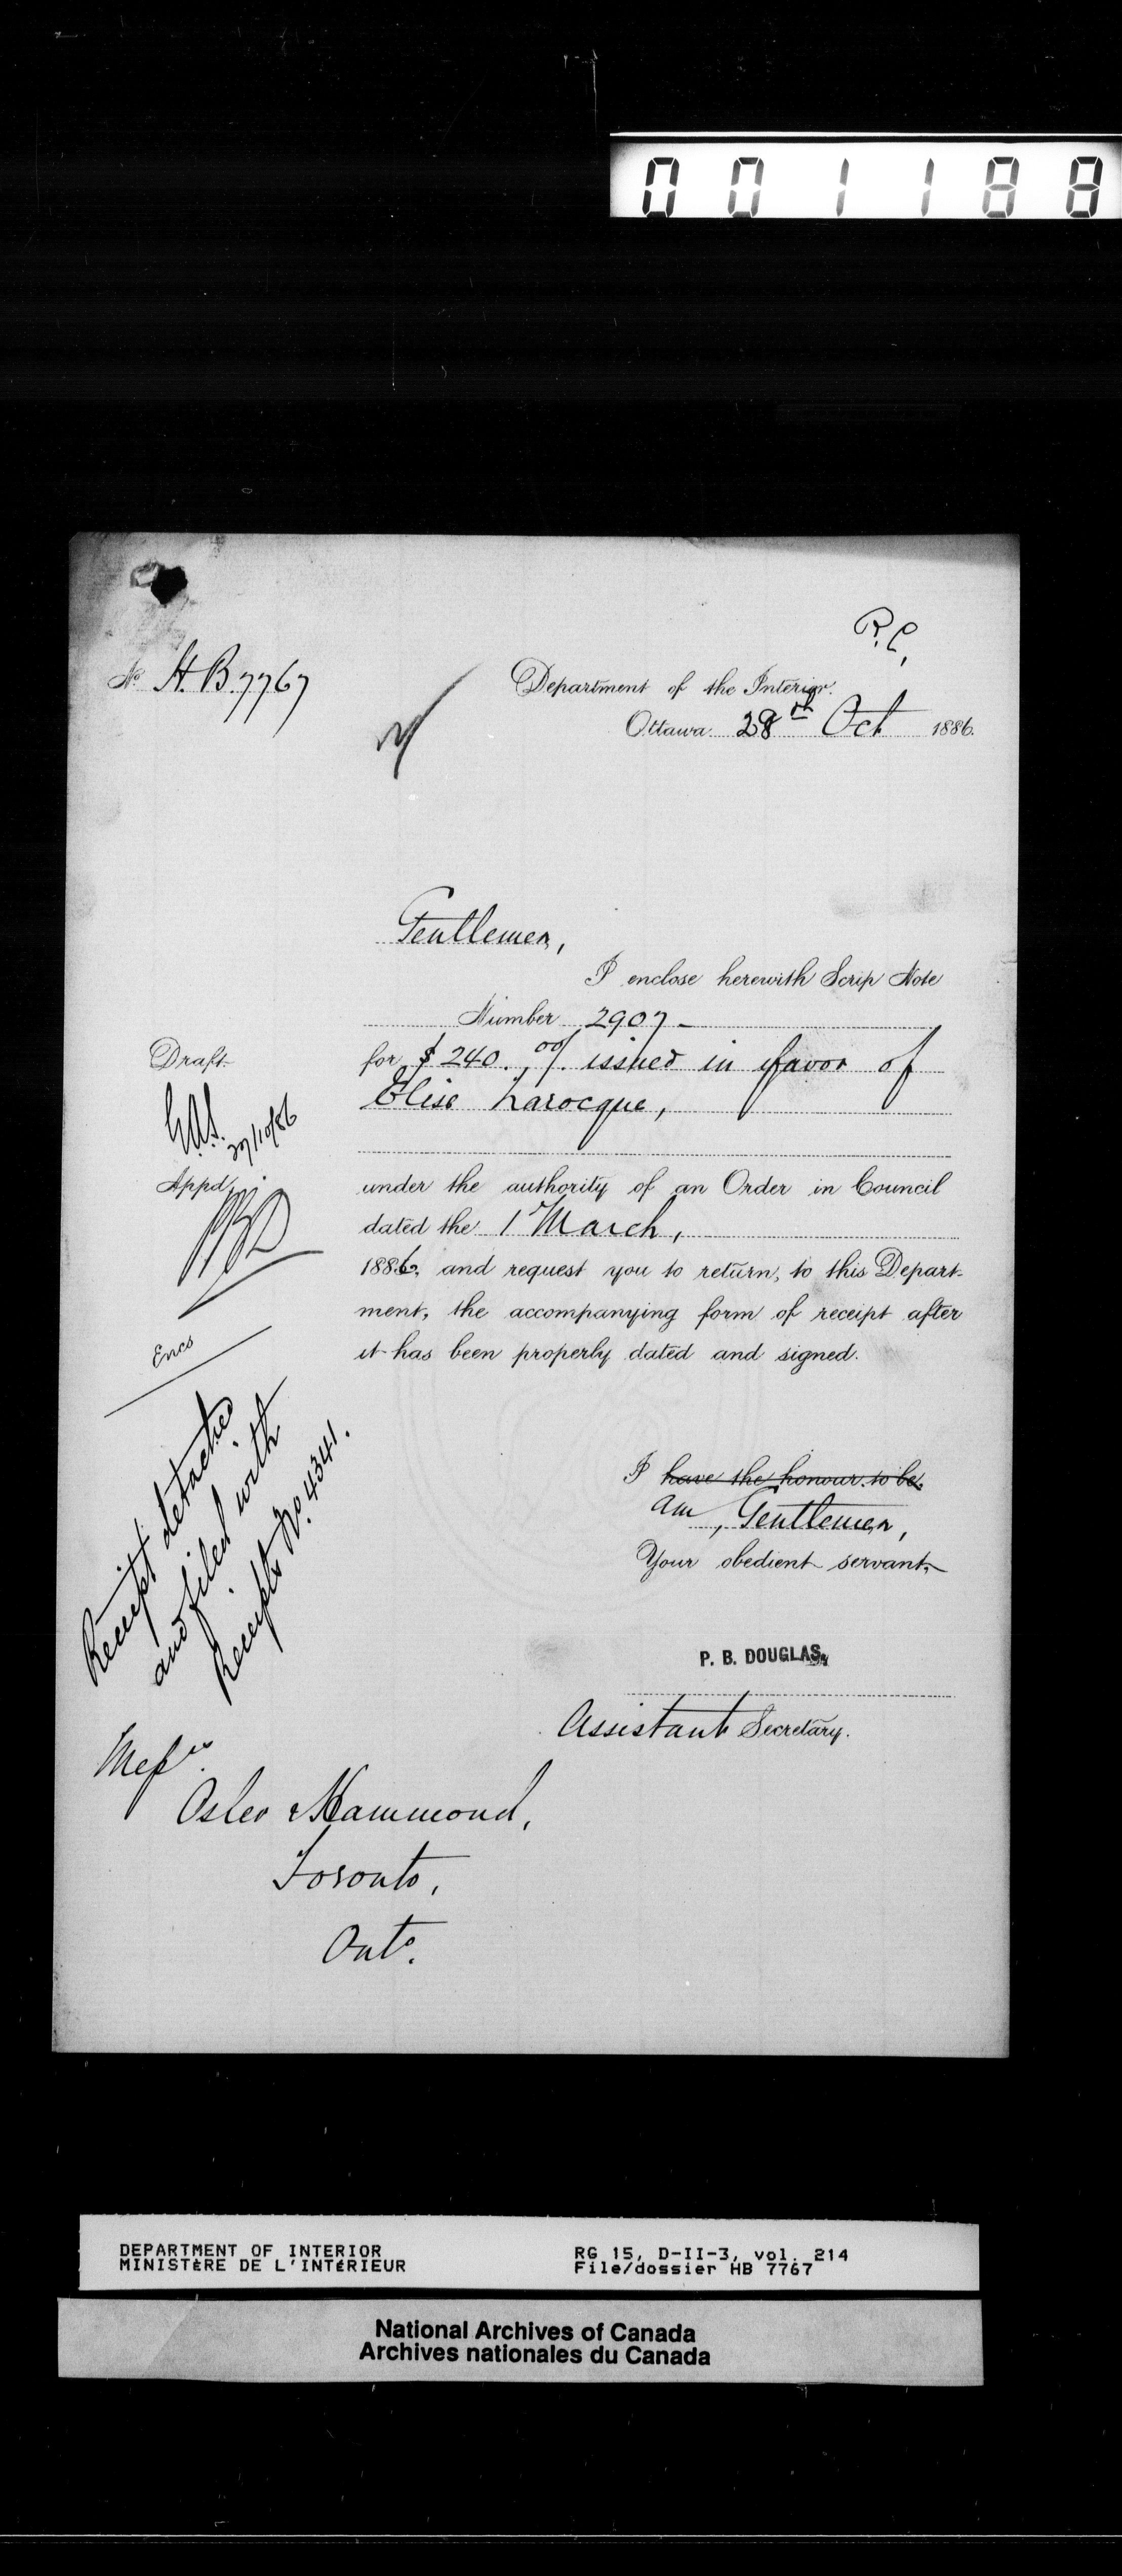 001188
R.C.
No. H.B. 7767
Department of the Interior.
Ottawa 28th Oct 1886.
Gentlemen,
I enclose herewith Scrip Note
Number 2907 -
for $240.00/ issued in favor of
Elise Larocque,
under the authority of an Order in Council
dated the 1 March,
1886, and request you to return, to this Depart-
ment, the accompanying form of receipt after
it has been properly dated and signed.
Draft.
27/10/86
Appd.
PBD
Encs
Receipt detached
and filed with
Receipts No. 4341.
I have the honour to be
am, Gentlemen,
Your obedient servant,
P. B. DOUGLAS,
Assistant Secretary.
Messrs.
Osler & Hammond,
Toronto,
Onto.
DEPARTMENT OF INTERIOR
MINISTÈRE DE L'INTÉRIEUR
RG 15, D-II-3, vol. 214
File/dossier HB 7767
National Archives of Canada
Archives nationales du Canada